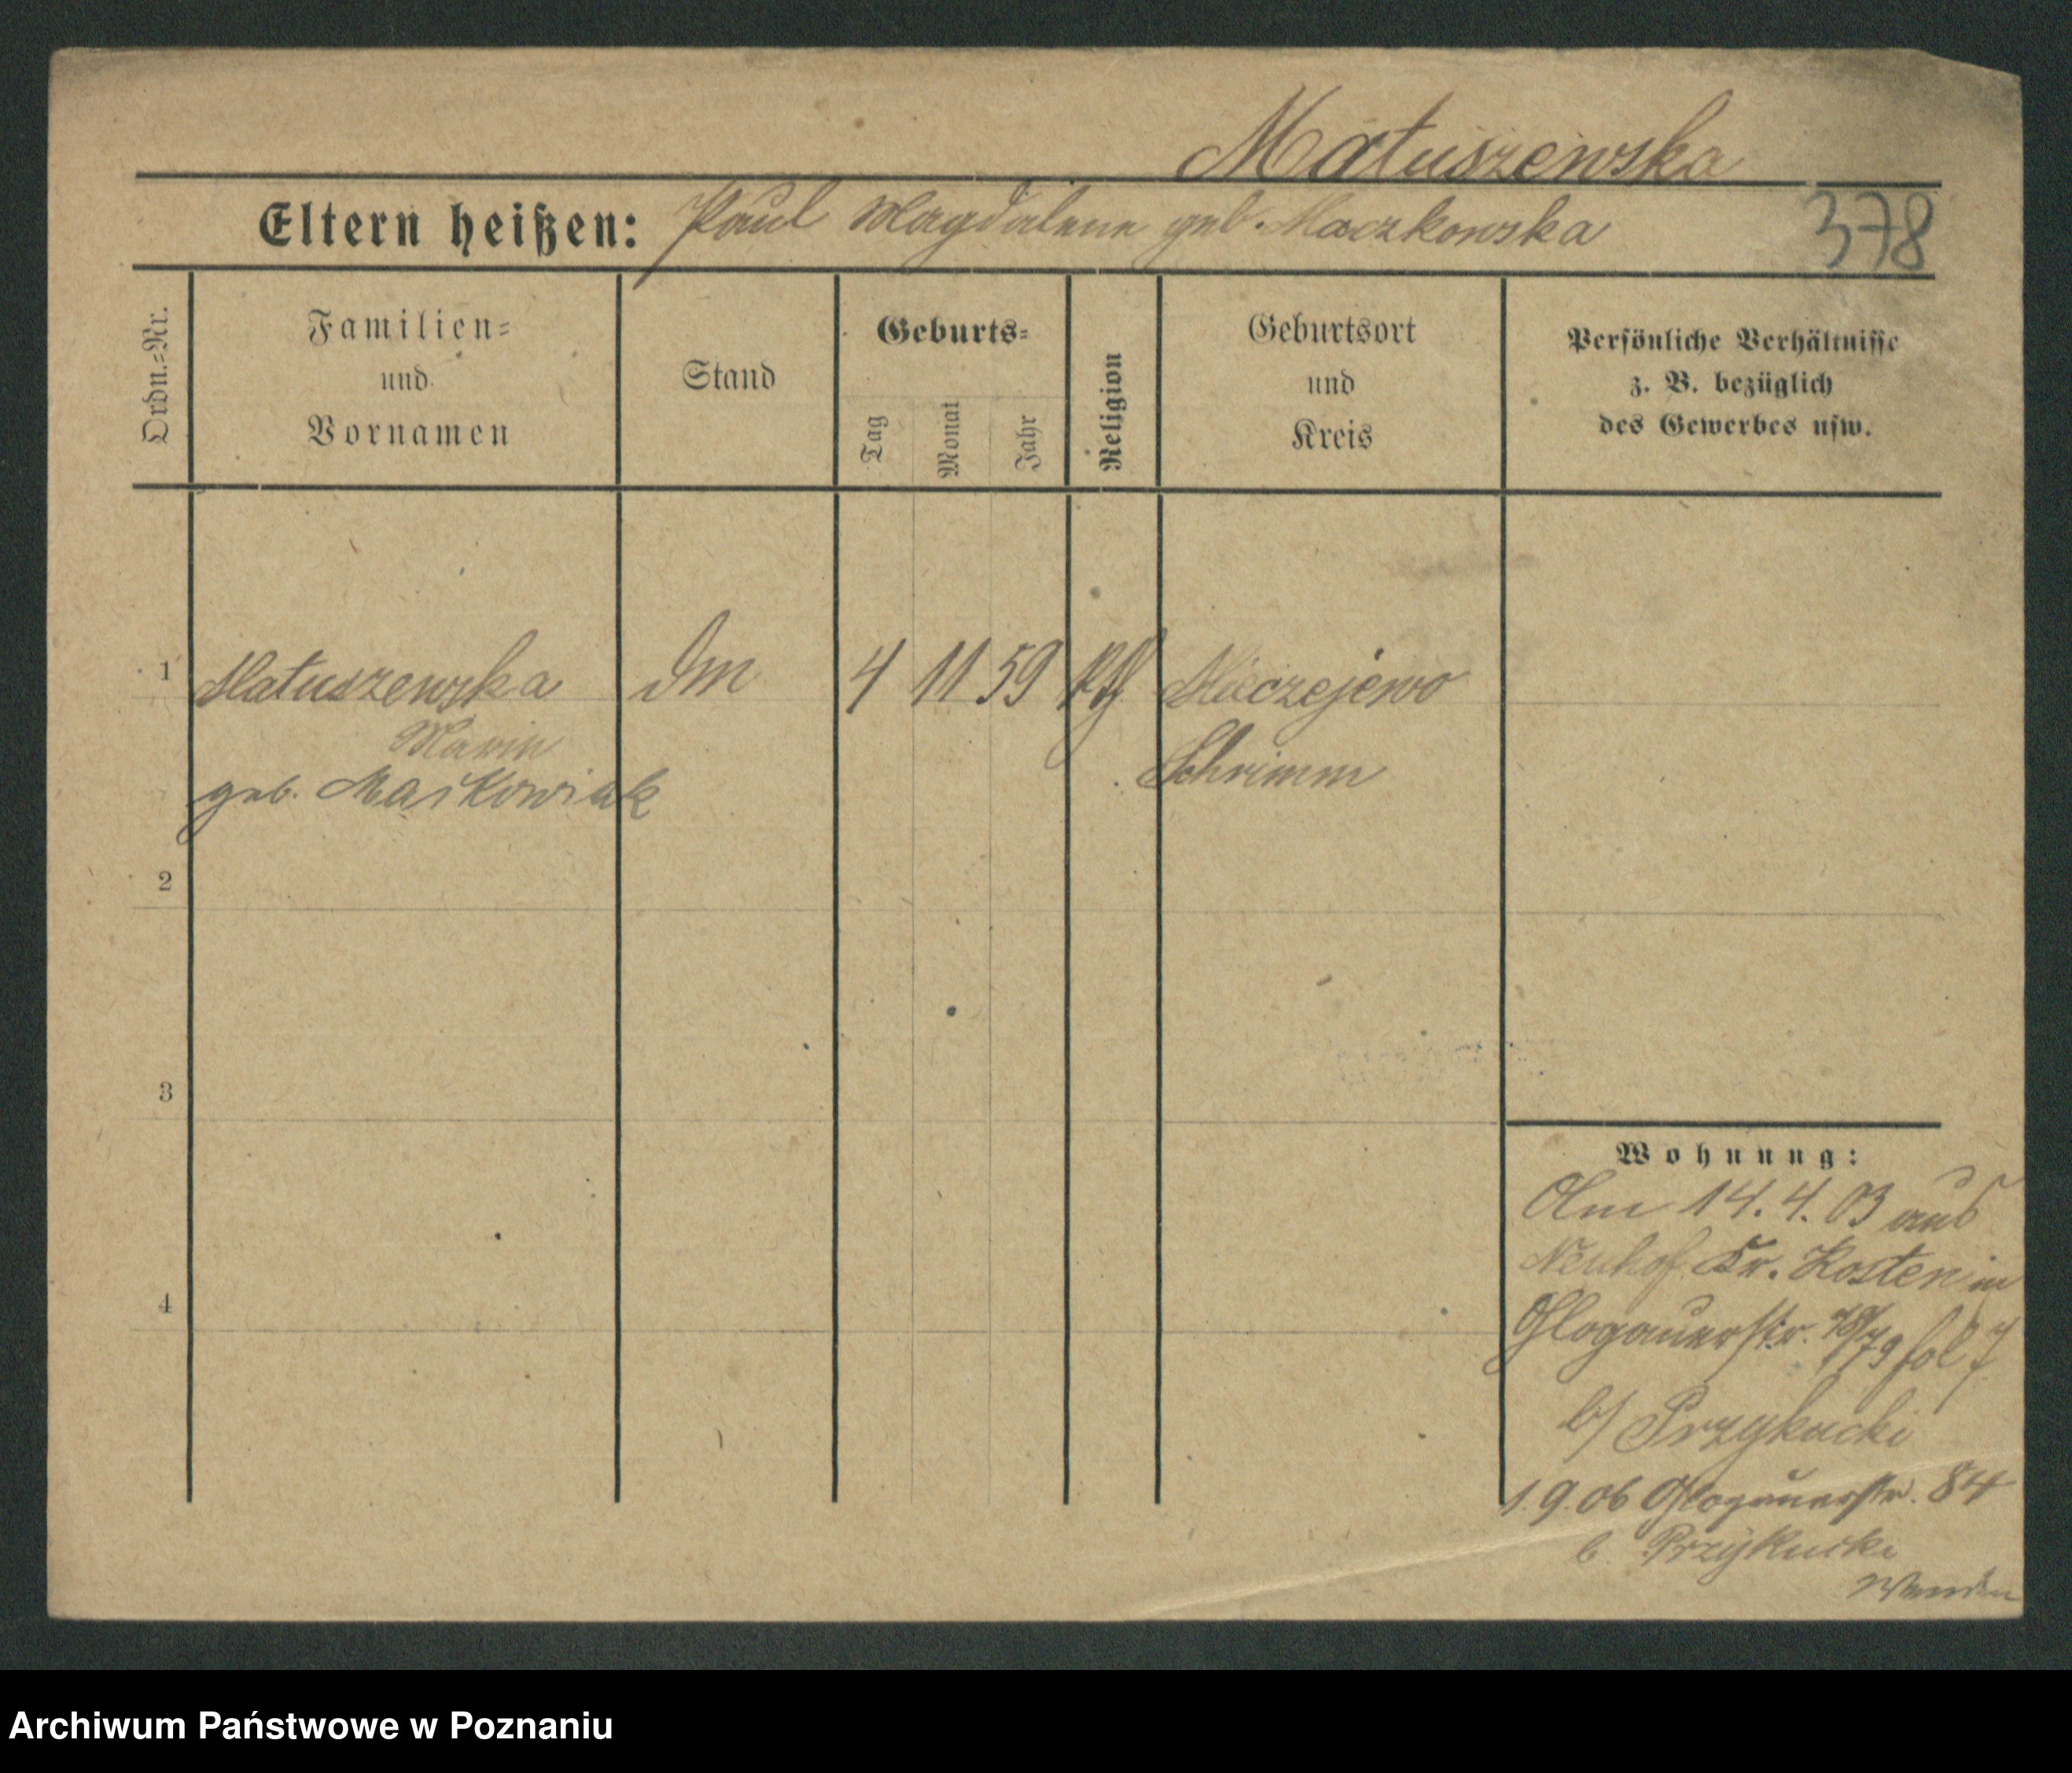 Matuszewska
Eltern heißen: Paul Magdalena geb. Maczkowska
378
Ordn.=Nr.
Familien=
und
Vornamen
Stand
Geburts=
Tag
Monat
Jahr
Religion
Geburtsort
und
Kreis
Persönliche Verhältnisse
z. B. bezüglich
des Gewerbes usw.
1 Matuszewska 4 11 59 Mieczejewo
Marie Schrimm
geb. Maćkowiak
2
3
4
Wohnung:
Am 14. 4. 03 aus
Neuhof Kr. Kosten in
Glogauerstr. 78/79 fol 7
b/ Przykucki
1. 9. 06 Glogauerstr. 84
b. Przykucki
Wenden
Archiwum Państwowe w Poznaniu